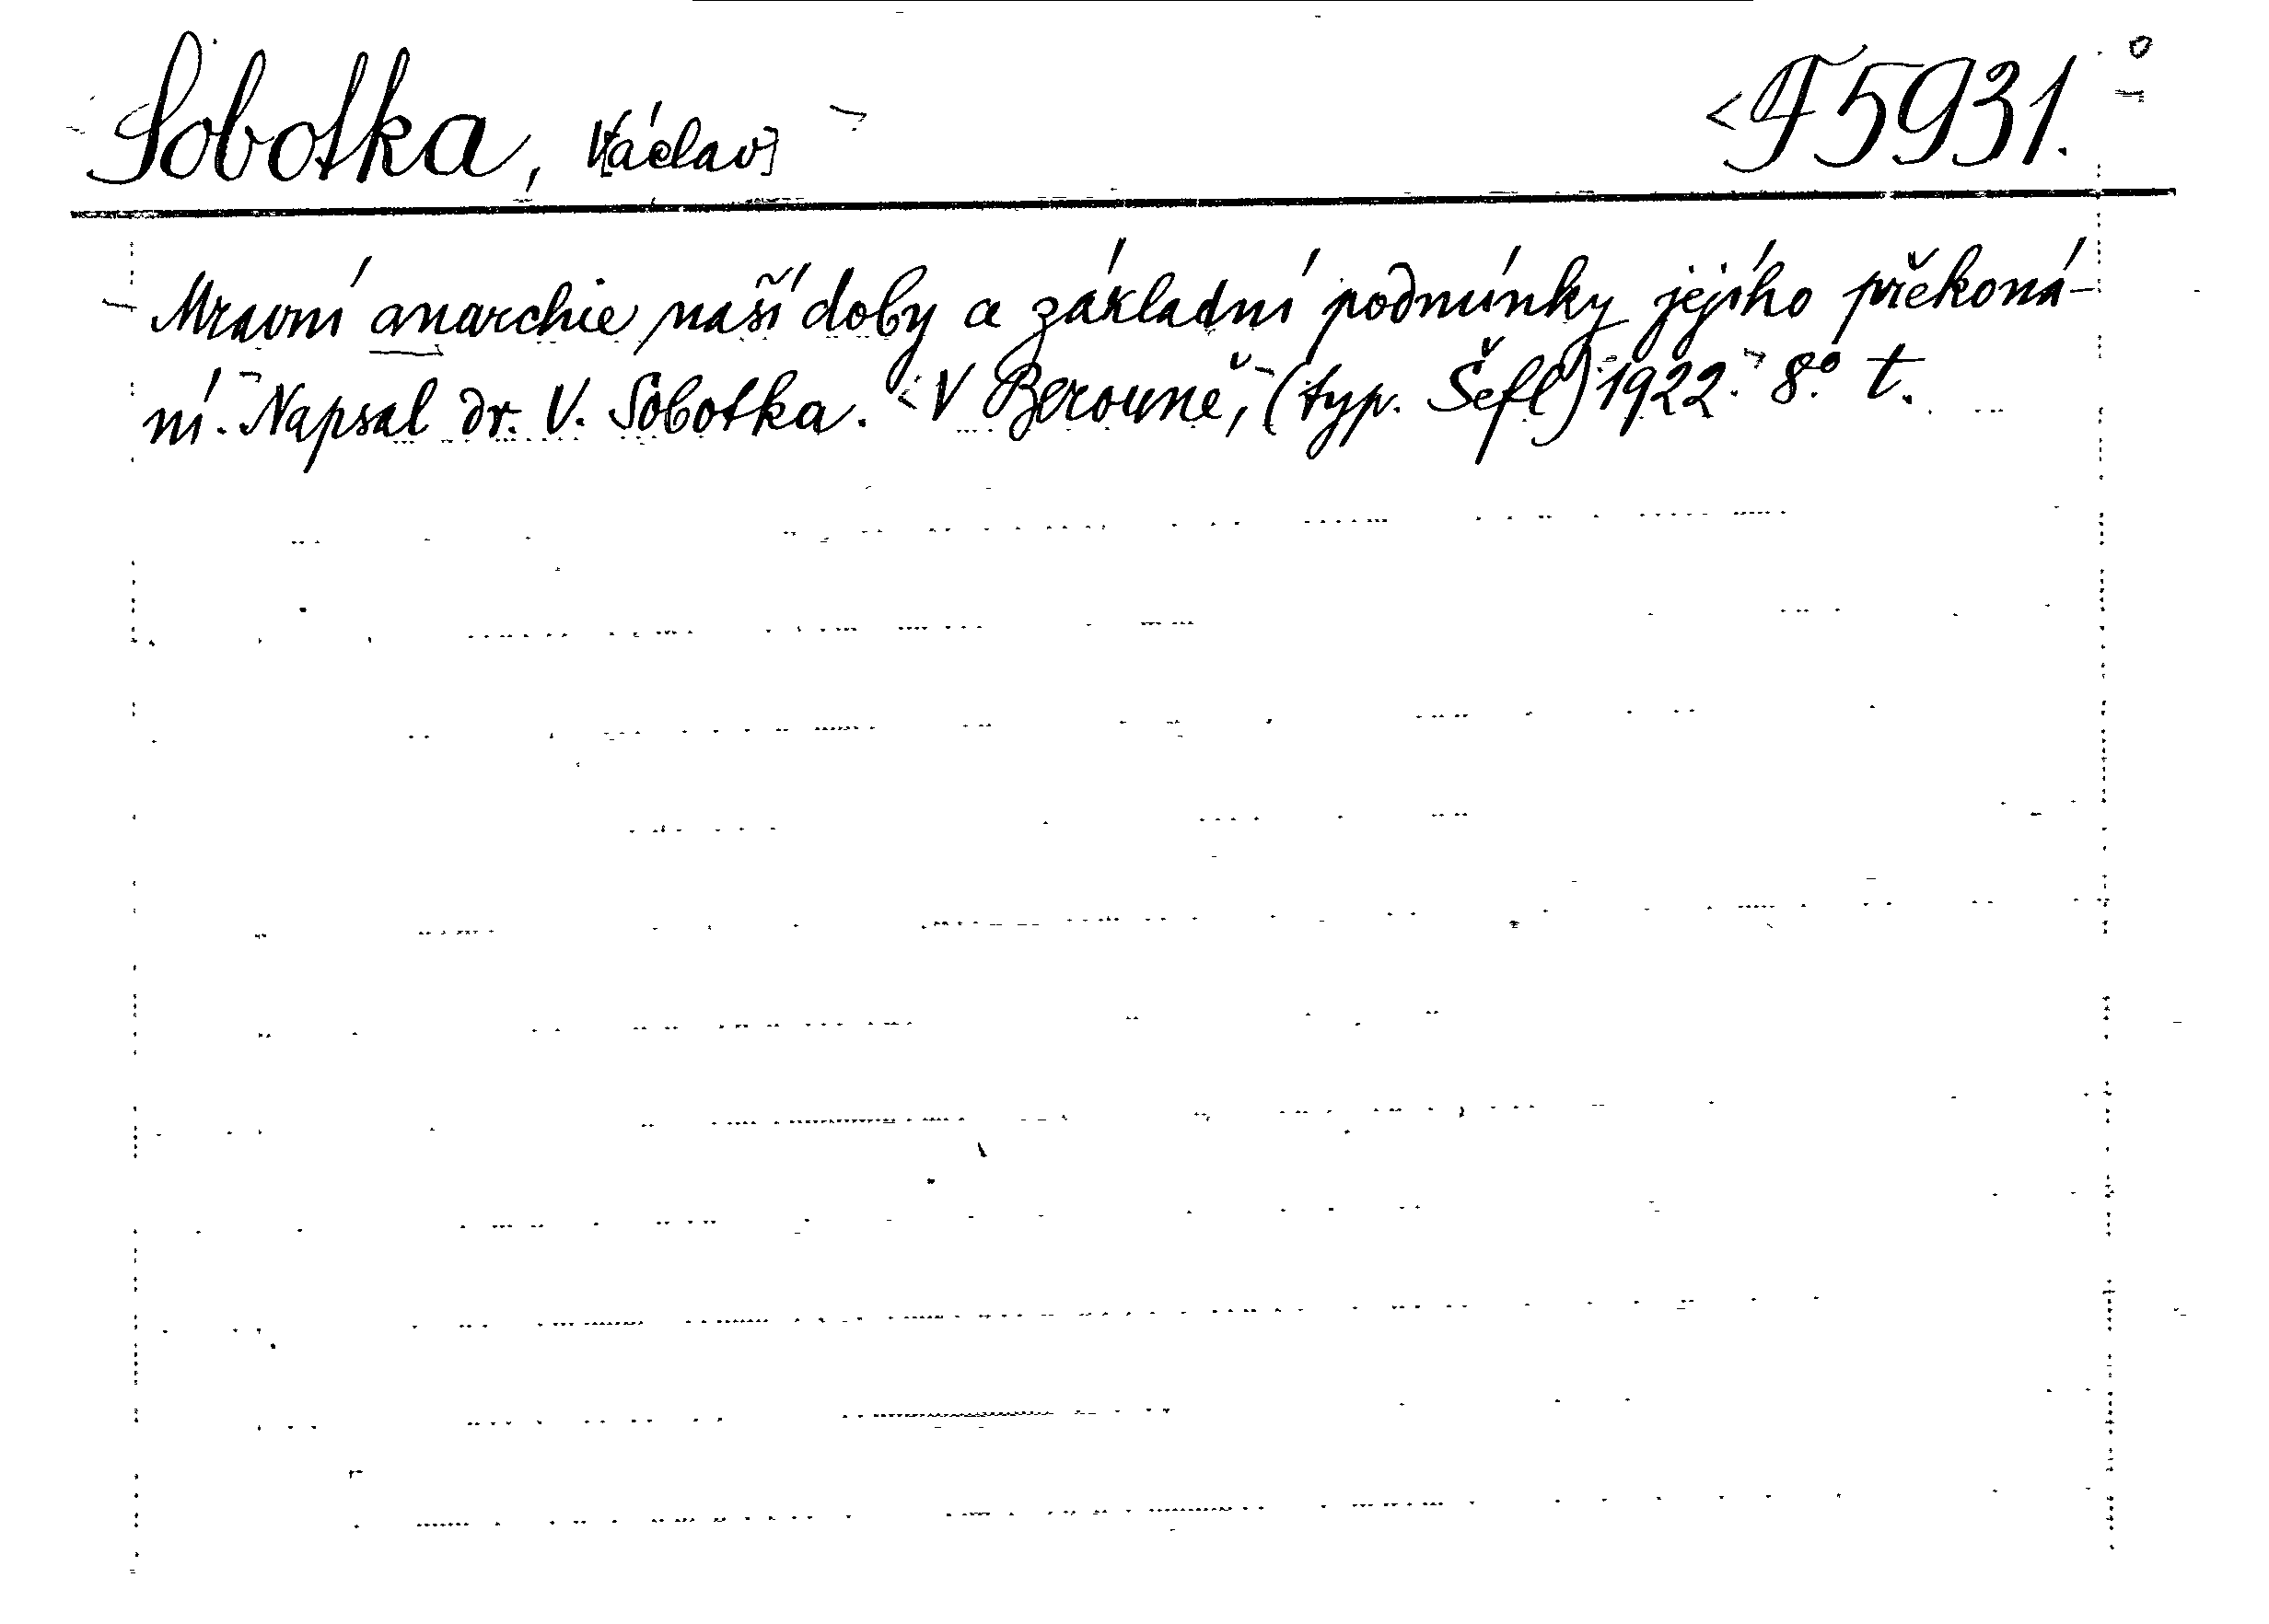 Sobotka, V[áclav] F 5931.
Mravní anarchie naší doby a základní podmínky jejího překoná-
ní. Napsal dr. V. Sobotka. V Berouně, (typ. Šefl) 1922. 8° t.